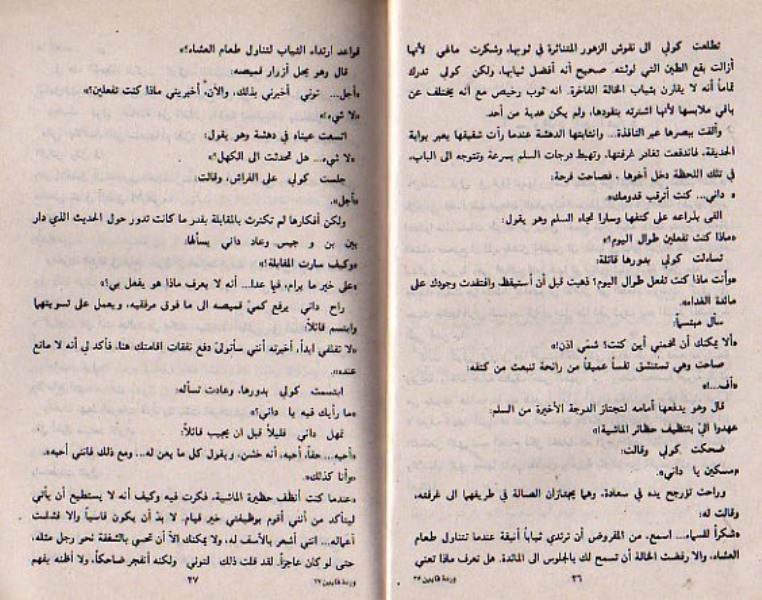 تطلعت كولي الى نقوش الزهور المتناثرة في ثوبها، وشكرت ماغي لأنها
أزالت بقع الطين التي لوثته. صحيح أنه أفضل ثيابها، ولكن كولي تدرك
تماماً أنه لا يقارن بثياب الخالة الفاخرة. انه ثوب رخيص مع أنه يختلف عن
باقي ملابسها لأنها اشترته بنقودها، ولم يكن هدية من أحد.
وألقت ببصرها عبر النافذة.. وانتابتها الدهشة عندما رأت شقيقها يعبر بوابة
الحديقة، فاندفعت تغادر غرفتها، وتهبط درجات السلم بسرعة وتتوجه الى الباب،
في تلك اللحظة دخل أخوها، فصاحت فرحة:
«داني... كنت أترقب قدومك».
القى بذراعه على كتفها وسارا تجاه السلم وهو يقول:
«ماذا كنت تفعلين طوال اليوم؟»
تساءلت كولي بدورها قائلة:
«وأنت ماذا كنت تفعل طوال اليوم؟ ذهبت قبل أن أستيقظ، وافتقدت وجودك على
مائدة الغداء».
سأل مبتسماً:
«ألا يمكنك أن تخمني أين كنت؟ شمّي اذن!»
صاحت وهي تستنشق نفساً عميقاً من رائحة تنبعث من كتفه:
«أف...!»
قال وهو يدفعها أمامه لتجتاز الدرجة الأخيرة من السلم:
عهدوا اليّ بتنظيف حظائر الماشية!»
ضحكت كولي وقالت:
«مسكين يا داني».
وراحت تؤرجح يده في سعادة، وهما يجتازان الصالة في طريقهما الى غرفته،
وقالت له:
«شكراً للسماء... اسمع، من المفروض أن ترتدي ثياباً أنيقة عندما تتناول طعام
العشاء، والا رفضت الخالة أن تسمح لك بالجلوس الى المائدة. هل تعرف ماذا تعني
٣٦
وردة قايين ٣٧
قواعد ارتداء الثياب لتناول طعام العشاء؟»
قال وهو يحل أزرار قميصه:
«أجل... توني أخبرني بذلك، والآن أخبريني ماذا كنت تفعلين؟»
«لا شيء»
اتسعت عيناه في دهشة وهو يقول:
«لا شيء... هل تحدثت الى الكهل؟»
جلست كولي على الفراش، وقالت:
«أجل».
ولكن أفكارها لم تكترث بالمقابلة بقدر ما كانت تدور حول الحديث الذي دار
بين بن و جيس وعاد داني يسألها:
«وكيف سارت المقابلة؟»
«على خير ما يرام، فيما عدا... أنه لا يعرف ماذا هو يفعل بي!»
راح داني يرفع كميّ قميصه الى ما فوق مرفقيه، ويعمل على تسويتهما
وابتسم قائلاً:
«لا تقلقي أبداً، أخبرته أنني سأتولى دفع نفقات اقامتك هنا، فأكد لي أنه لا مانع
عنده».
ابتسمت كولي بدورها، وعادت تسأله:
«ما رأيك فيه يا داني؟»
تمهل داني قليلاً قبل ان يجيب قائلاً:
«أحبه... حقاً، أحبه، أنه خشن، ويقول كل ما يعن له... ومع ذلك فانني أحبه».
«وأنا كذلك».
«عندما كنت أنظف حظيرة الماشية، فكرت فيه وكيف أنه لا يستطيع أن يأتي
ليتأكد من أنني أقوم بوظيفتي خير قيام. لا بدّ أن يكون قاسياً والا فشلت
أعماله... انني أشعر بالأسف له، ولا يمكنك الاّ أن تحسي بالشفقة نحو رجل مثله،
حتى لو كان عاجزاً. لقد قلت ذلك لتوني ولكنه أنفجر ضاحكاً، ولا أظنه يفهم
٣٧
وردة قايين ٣٧